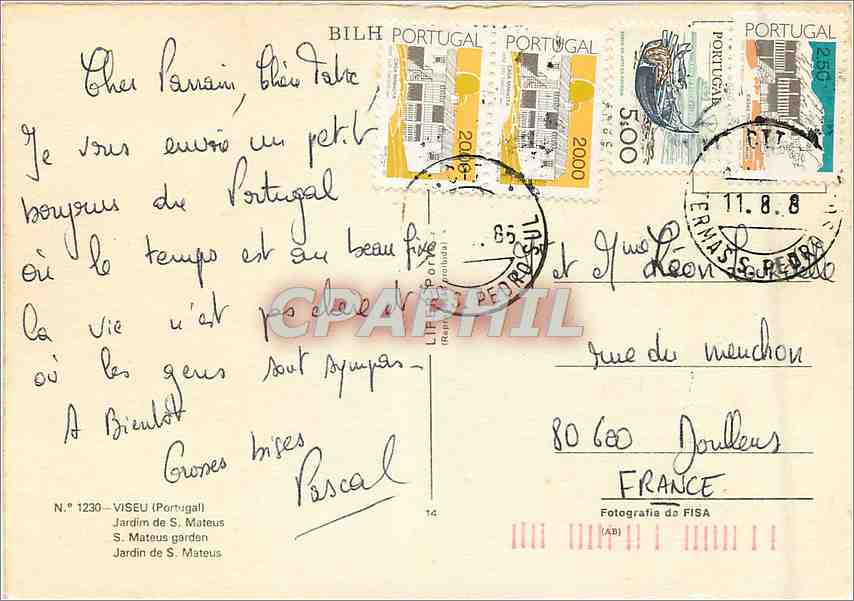 BILH
Cher Parrain, Chère Tatie,
Je vous envoie un petit
bonjour du Portugal
où le temps est au beau fixe
la vie n'est pas chère et
où les gens sont sympas -
A Bientôt
Grosses bises
Pascal
N.º 1230 — VISEU (Portugal)
Jardim de S. Mateus
S. Mateus garden
Jardin de S. Mateus
14
PORTUGAL
2000
PORTUGAL
2000
PORTUGAL
5$00
PORTUGAL
2$50
CTT
11. 8. 8
TERMAS S. PEDRO SUL
. 86
S. PEDRO SUL
et Mme Léon
rue du menchon
80 600 Doullens
FRANCE
Fotografia da FISA
(AB)
CPAPHIL